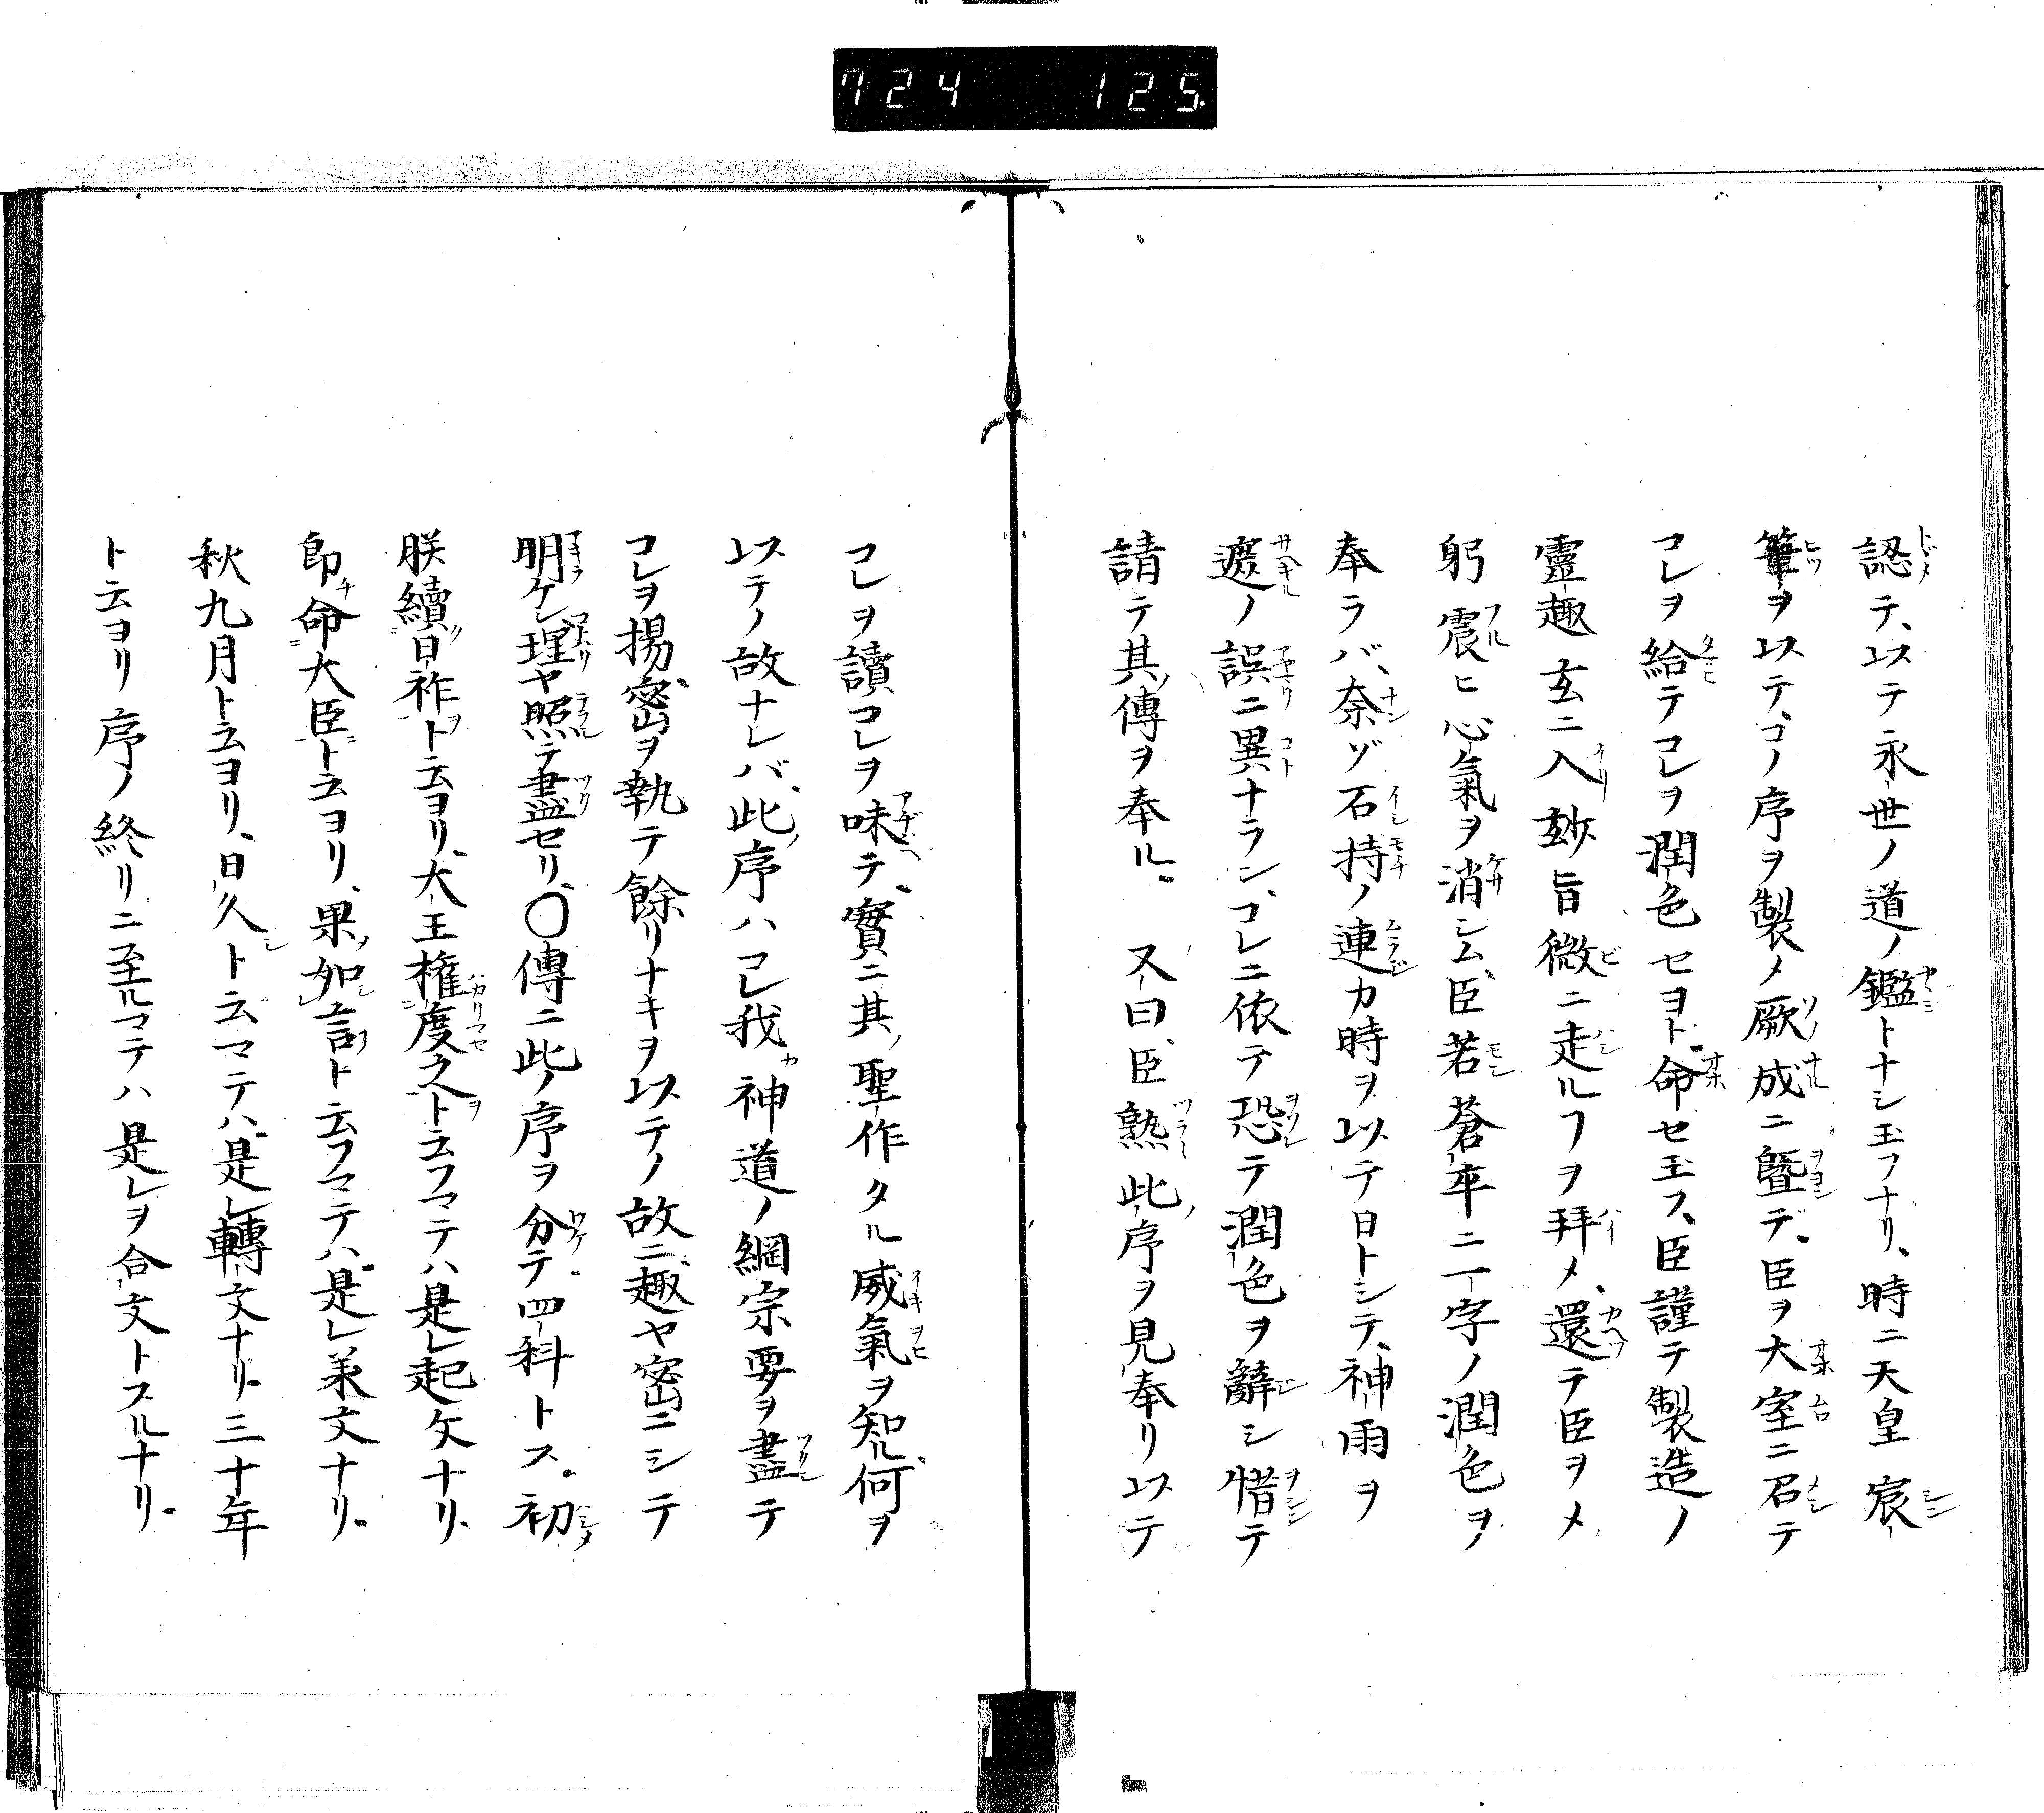 724 125.
認テ、以テ永世ノ道ノ鑑トナシ玉フナリ、時ニ天皇宸
筆ヲ以テ、コノ序ヲ製メ厥成ニ曁デ、臣ヲ大室ニ召テ
コレヲ給テコレヲ潤色セヨト、命セ玉ス、臣謹テ製造ノ
靈趣玄ニ入玅旨微ニ走ルヿヲ拜メ、還テ臣ヲメ
躬震ヒ心氣ヲ消シム、臣若蒼卒ニ一字ノ潤色ヲ
奉ラバ、奈ゾ石持ノ連カ時ヲ以テ日トシテ、神雨ヲ
遮ノ誤ニ異ナラン、コレニ依テ恐テ潤色ヲ辭シ惜テ
請テ其傳ヲ奉ル 又曰、臣熟此序ヲ見奉リ以テ
コレヲ讀コレヲ味テ、實ニ其聖作タル威氣ヲ知ル、何ヲ
以テノ故ナレバ、此序ハコレ我神道ノ綱宗要ヲ盡テ
コレヲ揚密ヲ執テ餘リナキヲ以テノ故ニ、趣ヤ密ニシテ
明ケシ理ヤ照テ盡セリ、〇傳ニ此ノ序ヲ分テ四科トス、初
朕續日祚ト云ヨリ、大王權度之ト云フマテハ是レ起文ナリ、
即命大臣ト云ヨリ、果如言ト云フマテハ、是レ業文ナリ、
秋九月ト云ヨリ、日久ト云マテハ、是レ轉文ナリ、三十年
ト云ヨリ序ノ終リニ至ルマテハ是レヲ合文トスルナリ